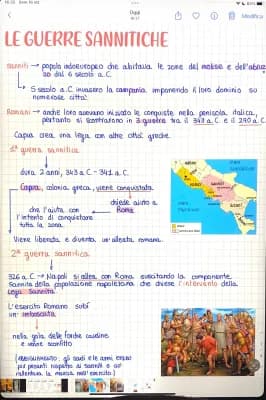 Oggi
Modifica
LE GUERRE SANNITICHE
sanniti → popolo indoeuropeo che abitava le zone del molise e dell'abruz
zo dal 6 secolo a.C.
5 secolo a.C invasero la campania imponendo il loro dominio su
numerose città.
Romani → anche loro avevano iniziato le conquiste nella penisola italica,
pertanto si scontrarono in 3 guerre tra il 343 a.C e il 290 a.C.
Capua crea una lega con altre città greche.
1° guerra sannitica
dura 2 anni, 343 a.C - 341 a.C.
Capua, colonia greca, viene conquistata
chiede aiuto a
Roma
che l'aiuta con
l'intento di conquistare
tutta la zona.
Viene liberata e diventa un'alleata romana.
2° guerra sannitica
326 a.C → Napoli si allea con Roma suscitando la componente
Sannita della popolazione napoletana che chiese l'intervento della
Lega Sannita.
L'esercito Romano subì
un'imboscata
nella gola delle forche caudine
e viene sconfitto